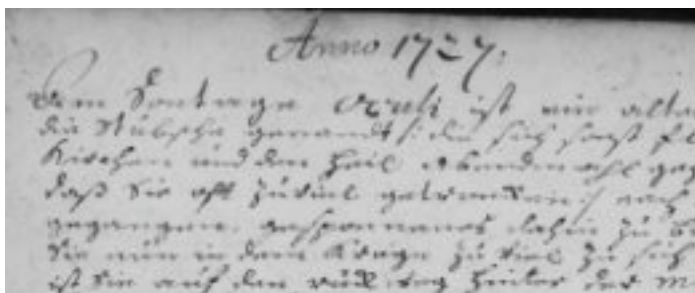 Anno 1727.
Dem Sontage Oculi ist ein alte
die Stübsche genandt /: die sich sonst
Kirchen und dem Heil. Abendmahl
daß Sie oft zuviel getruncken :/ nach
gegangen, gesponnenes dahin zu
Sie nun in dem Kruge zu viel zu sich
ist Sie auf den rück weg hinter der